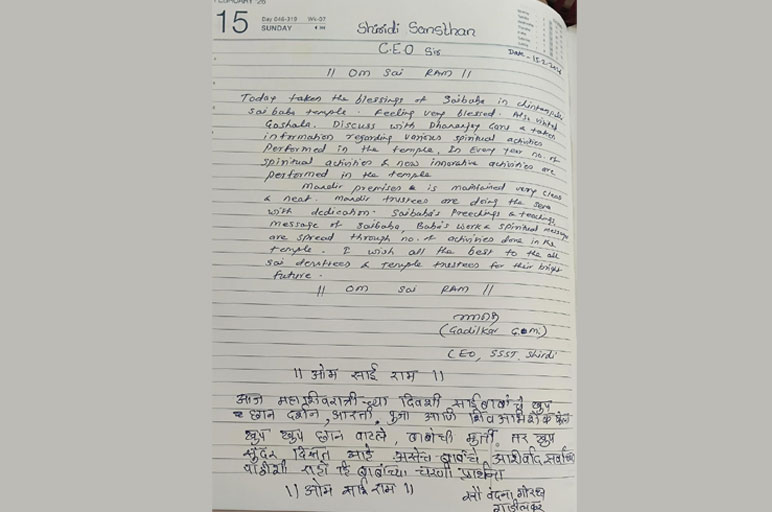 15
Day 046-319 Wk-07
SUNDAY
Shiridi Sansthan
C.E.O Sir
Date - 15.2.
|| Om Sai RAM ||
Today taken the blessings of Saibaba in
Sai baba temple. Feeling very blessed. Also visited
Goshala. Discuss with Dhananjay & taken
information regarding various spiritual activities
Performed in the temple. In Every year no. of
spiritual activities & new innovative activities are
performed in the temple
Mandir premises & is maintained very clean
& neat. Mandir trustees are doing the seva
with dedication. Saibaba's Preechings & teachings
message of Saibaba, Baba's work & spiritual message
are spread through no. of activities done in the
temple. I wish all the best to the all
sai devotees & temple trustees for their bright
future.
|| Om Sai RAM ||
(Gadilkar G.M.)
CEO, SSST, Shirdi
|| ओम साई राम ||
आज महाशिवरात्रीच्या दिवशी साईबाबांचे खुप
छान दर्शन, आरती, पुजा आणि शिव अभिषेक केला
खुप खुप छान वाटले, बाबांची मुर्ती तर खुप
सुंदर दिसत आहे असेच बाबांचे आशिर्वाद सर्वांच्या
पाठीशी राहो हि बाबांच्या चरणी प्रार्थना
|| ओम साई राम ||
सौ वंदना गोरक्ष
गाडीलकर